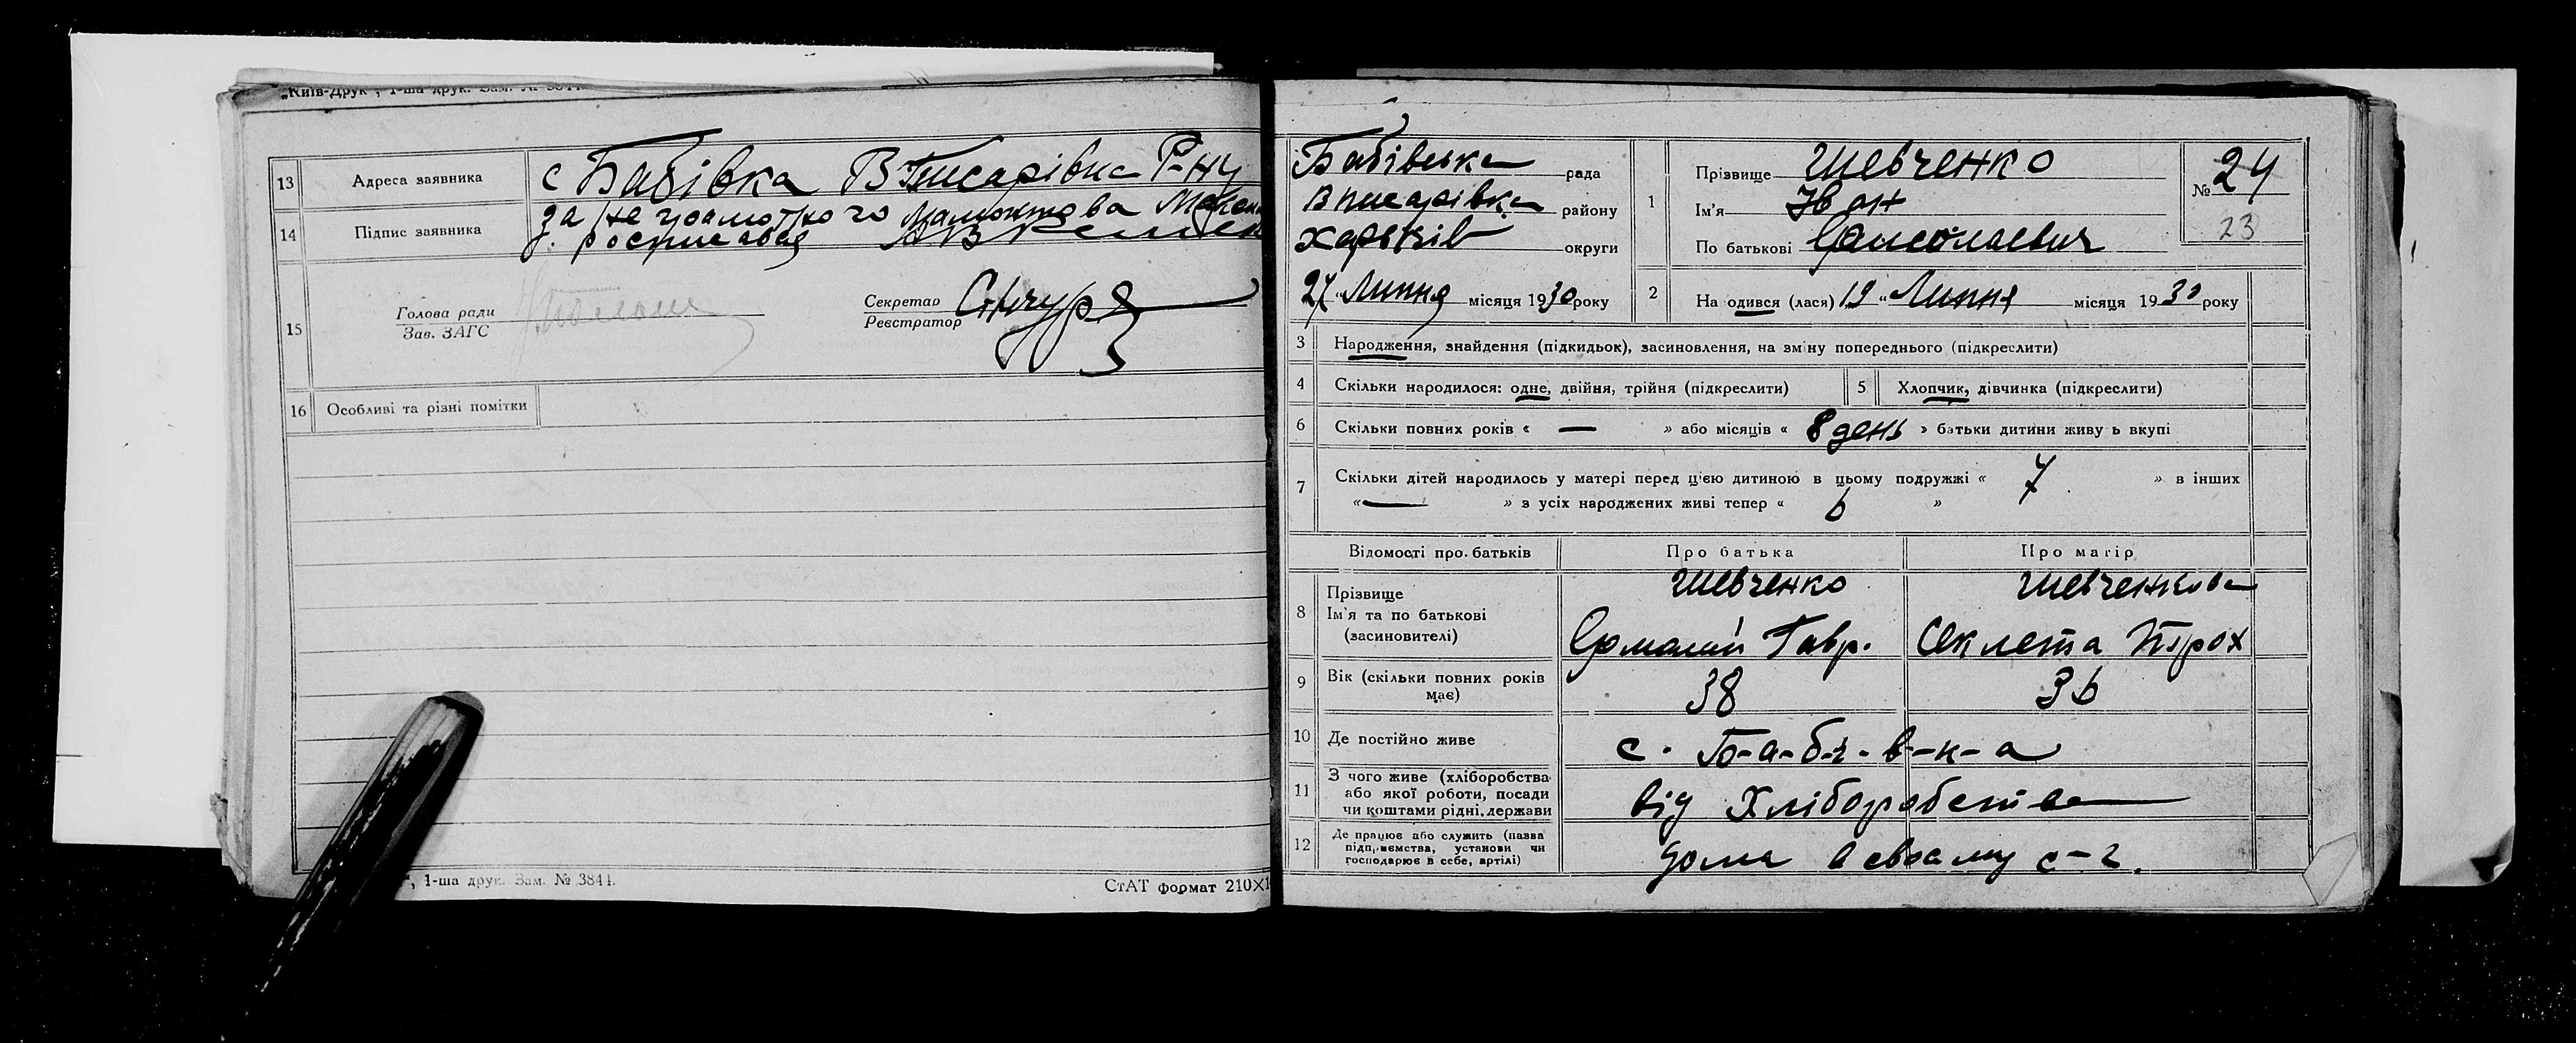 „Київ-Друк", 1-ша друк. Зам. № 3844.
13 Адреса заявника с Бабівка В Писарівка Р-ну
14 Підпис заявника за не грамотного
росписавая
15 Голова ради
Зав. ЗАГС
Секретар
Реєстратор
16 Особливі та різні помітки
", 1-ша друк. Зам. № 3844.
СтАТ формат 210×1
Бабівська рада
В писарівка району
Харьків округи
27 "Липня місяця 1930 року
1 Прізвище Шевченко
Ім'я Іван
По батькові
№ 24
23
2 На одився (лася) 19 „ Липня місяця 1930 року
3 Народження, знайдення (підкидьок), засиновлення, на зміну попереднього (підкреслити)
4 Скільки народилося: одне, двійня, трійня (підкреслити) 5 Хлопчик, дівчинка (підкреслити)
6 Скільки повних років « — » або місяців « 8 день » батьки дитини живу ь вкупі
7 Скільки дітей народилось у матері перед цією дитиною в цьому подружжі « 7 » в інших
« — » з усіх народжених живі тепер « 6 »
Відомості про батьків Про батька Про матір
8 Прізвище Шевченко Шевченкова
Ім'я та по батькові
(засиновителі) Єрмолай Гавр. Секлета Трох
9 Вік (скільки повних років має) 38 36
10 Де постійно живе с. Б-а-б-і-в-к-а
11 З чого живе (хліборобства
або якої роботи, посади
чи коштами рідні, держави від Хліборобства
12 Де працює або служить (назва
підприємства, установи чи
господарює в себе, артілі) дома в своаму с-г.